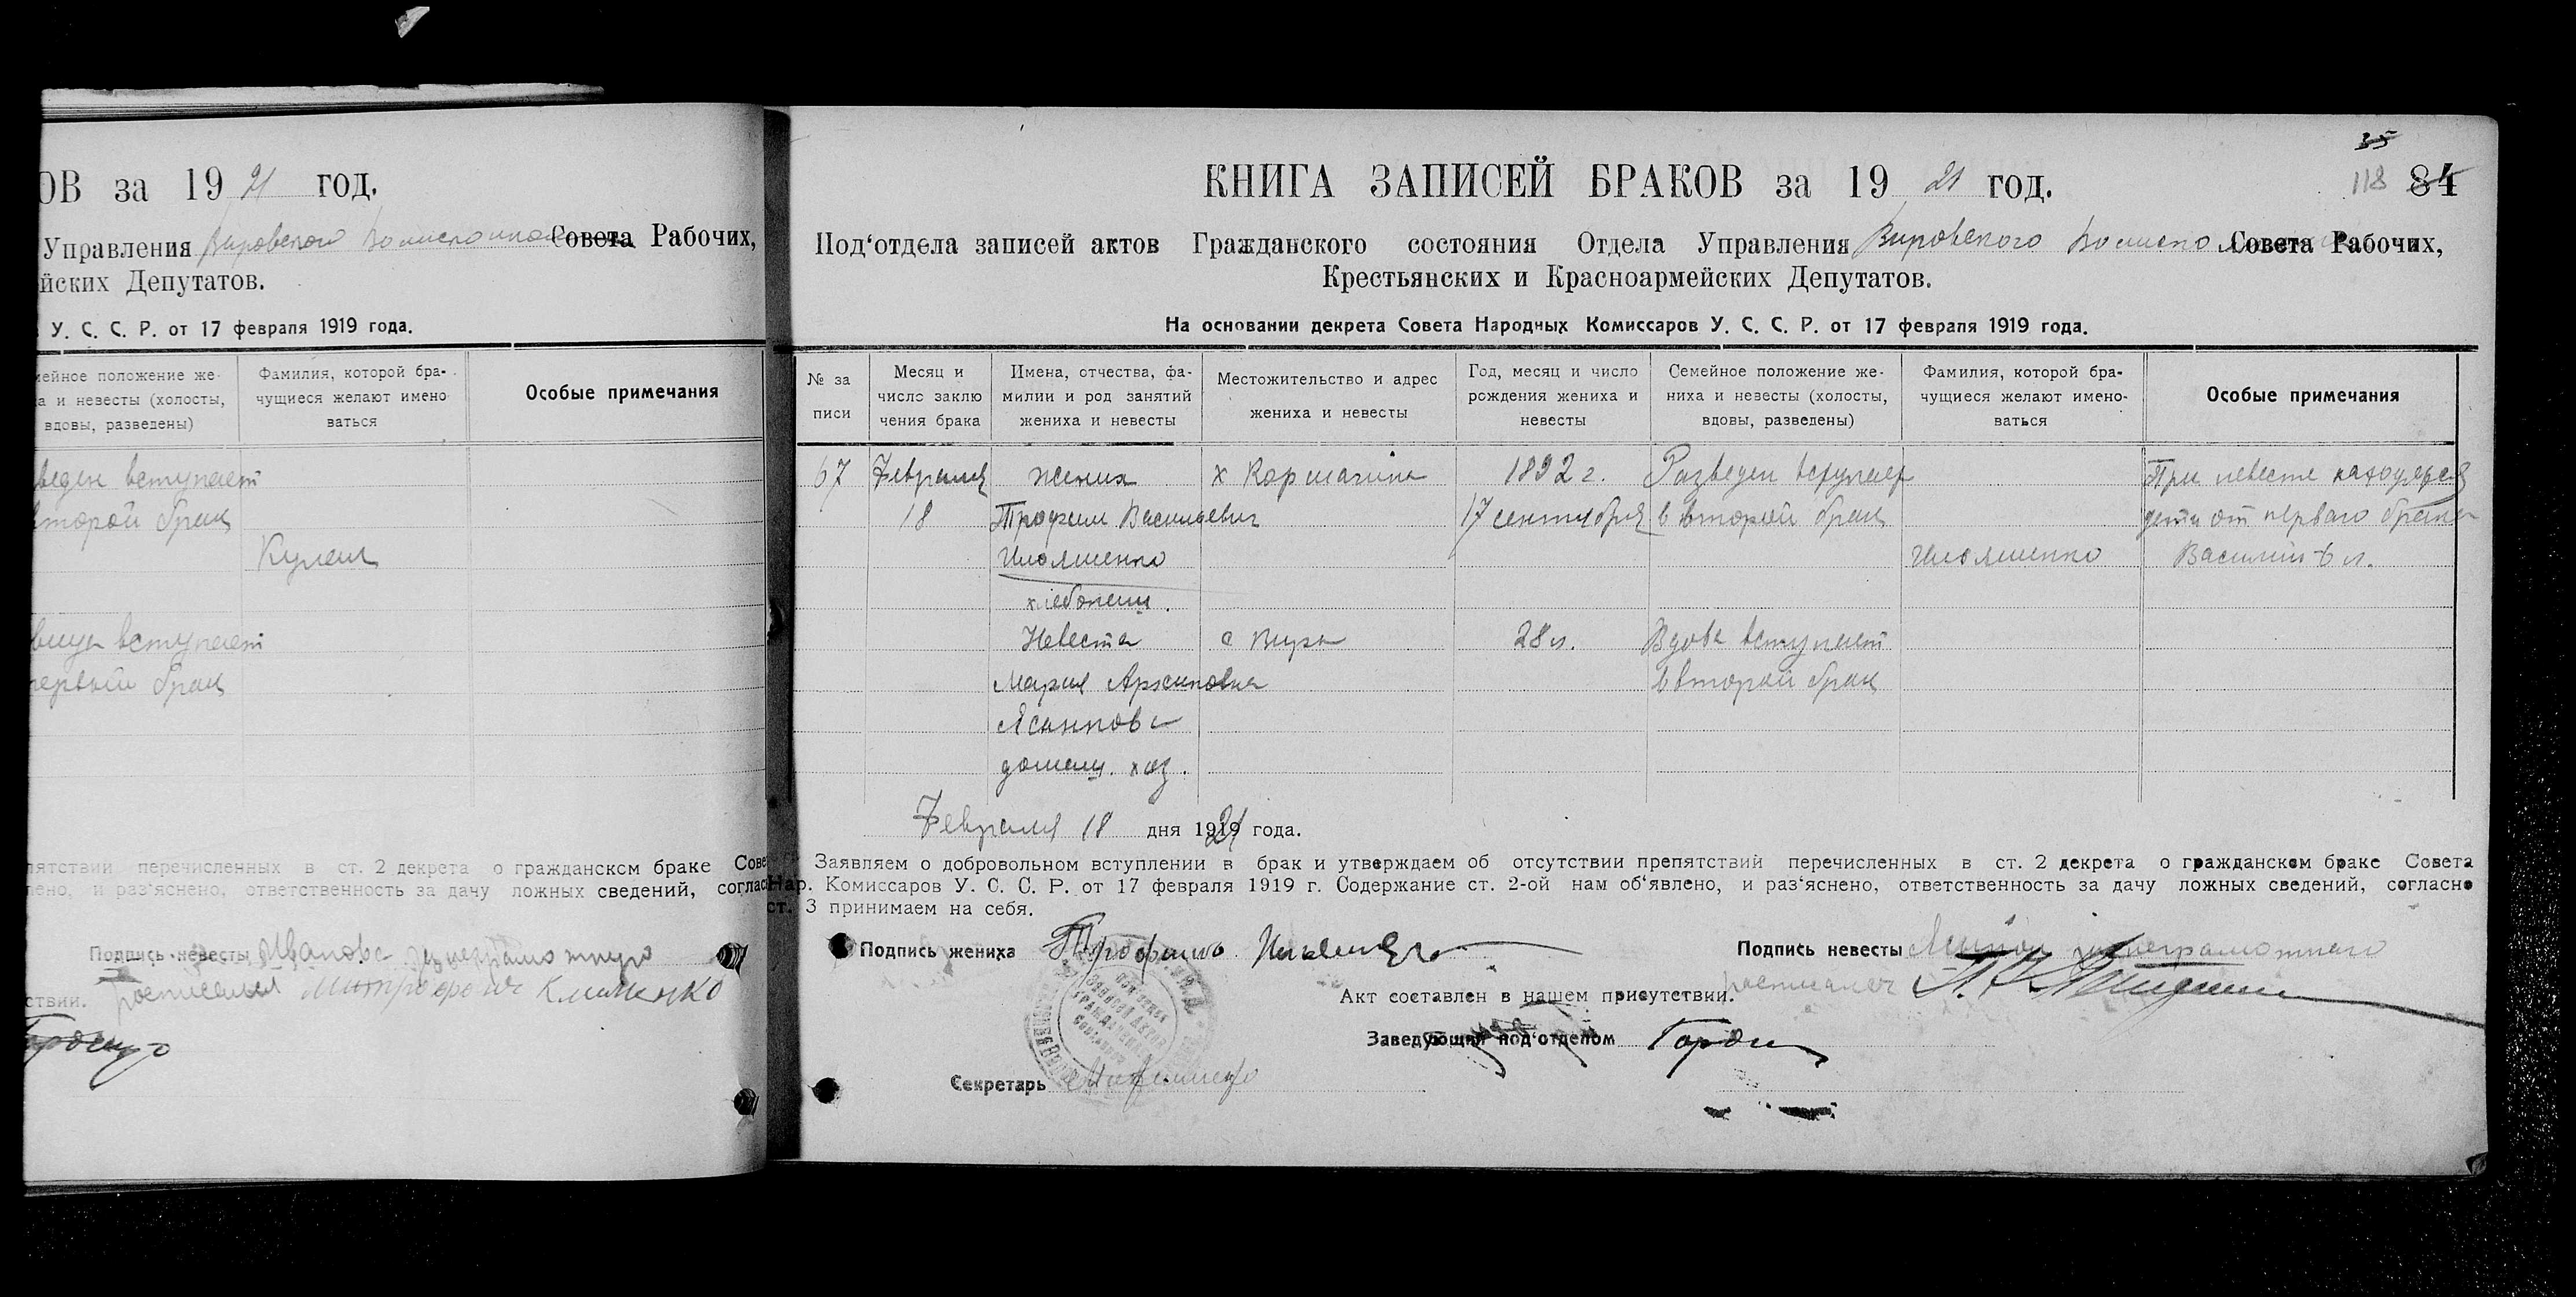 ОВ за 1921 год.
Управления Вировского Волисполкома Совета Рабочих,
йских Депутатов.
У. С. С. Р. от 17 февраля 1919 года.
мейное положение же-
а и невесты (холосты,
вдовы, разведены)
Фамилия, которой бра-
чущиеся желают имено-
ваться
Особые примечания
веден вступает
второй брак
Кулеш
вица вступает
первый брак
пятствий перечисленных в ст. 2 декрета о гражданском браке Сове
лено, и раз‘яснено, ответственность за дачу ложных сведений, соглас
Подпись невесты Иванова за неграмотную
ствии. росписался Митрофан Клименко
35
118 84
КНИГА ЗАПИСЕЙ БРАКОВ за 1921 год.
Под‘отдела записей актов Гражданского состояния Отдела Управления Вировского Волисполкома Совета Рабочих,
Крестьянских и Красноармейских Депутатов.
На основании декрета Совета Народных Комиссаров У. С. С. Р. от 17 февраля 1919 года.
№ за
писи
Месяц и
число заклю
чения брака
Имена, отчества, фа-
милии и род занятий
жениха и невесты
Местожительство и адрес
жениха и невесты
Год, месяц и число
рождения жениха и
невесты
Семейное положение же-
ниха и невесты (холосты,
вдовы, разведены)
Фамилия, которой бра-
чущиеся желают имено-
ваться
Особые примечания
67 Февраля жених х 1892 г. Разведен вступает При невесте находятся
18 Трофим Васильевич 17 сентября в второй брак дети от первого брака
Ильяшенко Ильяшенко Василий 6 л.
хлебопаш.
Невеста с Виры 28 л. Вдова вступает
Мария Архиповна в второй брак
домаш. хоз.
Февраля 18 дня 1921 года.
Заявляем о добровольном вступлении в брак и утверждаем об отсутствии препятствий перечисленных в ст. 2 декрета о гражданском браке Совета
Нар. Комиссаров У. С. С. Р. от 17 февраля 1919 г. Содержание ст. 2-ой нам об‘явлено, и раз‘яснено, ответственность за дачу ложных сведений, согласно
ст. 3 принимаем на себя.
Подпись жениха Трофим Подпись невесты неграмотная
Акт составлен в нашем присутствии. росписался
Заведующий под‘отделом
Секретарь